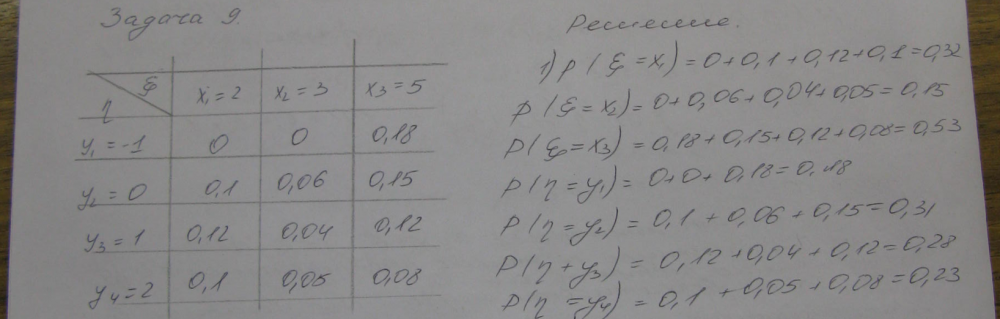 Задача 9.
ξ x₁=2 x₂=3 x₃=5
η
y₁=-1 0 0 0,18
y₂=0 0,1 0,06 0,15
y₃=1 0,12 0,04 0,12
y₄=2 0,1 0,05 0,08
Решение.
1) P(ξ=x₁)=0+0,1+0,12+0,1=0,32
P(ξ=x₂)=0+0,06+0,04+0,05=0,15
P(ξ=x₃)=0,18+0,15+0,12+0,08=0,53
P(η=y₁)=0+0+0,18=0,18
P(η=y₂)=0,1+0,06+0,15=0,31
P(η+y₃)=0,12+0,04+0,12=0,28
P(η=y₄)=0,1+0,05+0,08=0,23